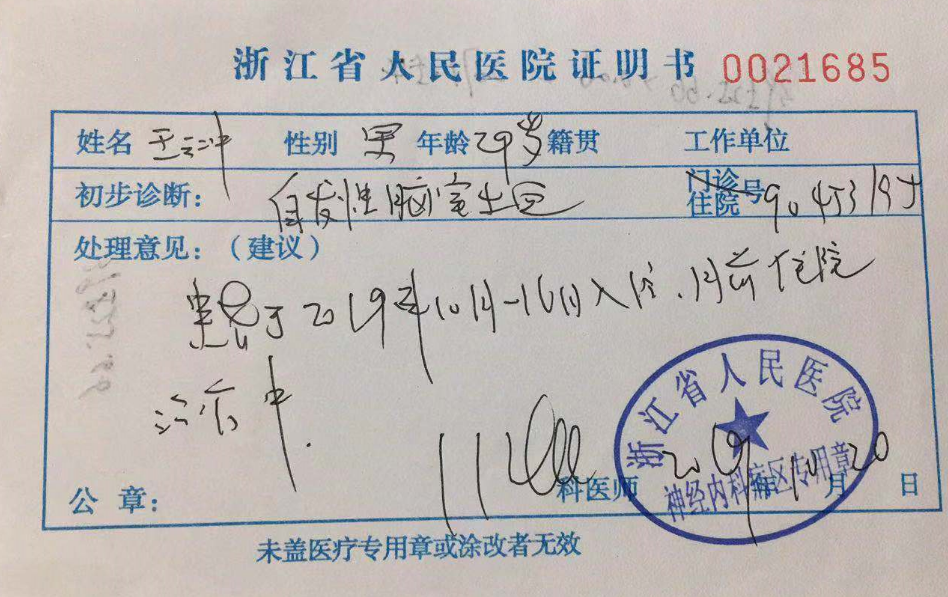 浙江省人民医院证明书 0021685
姓名 王云冲 性别 男 年龄 29岁 籍贯 工作单位
初步诊断: 自发性脑室出血 门诊号 住院 90453195
处理意见:(建议)
患者于2019年10月16日入院,目前住院
治疗中.
浙江省人民医院
神经内科病区专用章
公章: 科医师 2019年10月20日
未盖医疗专用章或涂改者无效